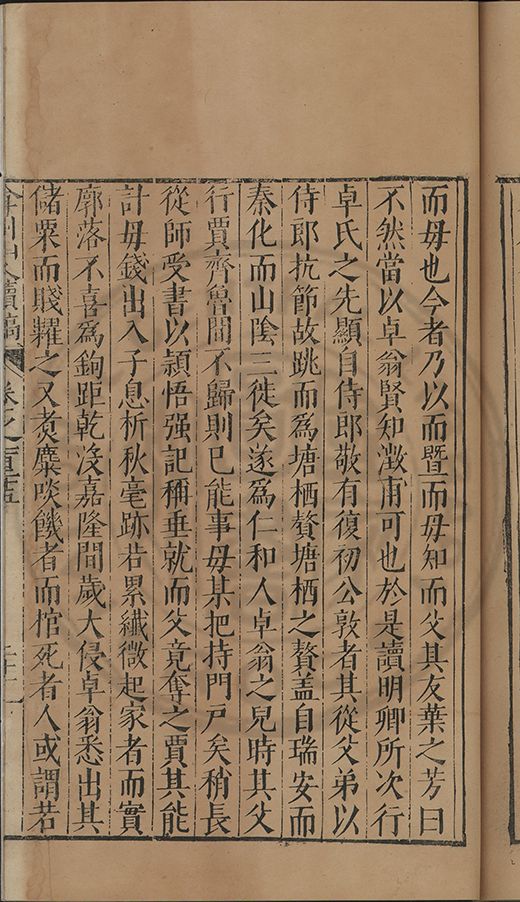 而毋也今者乃以而暨而毋知而父其友葉之芳曰
不然當以卓翁賢知澂甫可也於是讀明卿所次行
卓氏之先顯自侍郎敬有復初公敦者其從父弟以
侍郎抗節故跳而爲塘栖贅塘栖之贅盖自瑞安而
秦化而山陰三徙矣遂爲仁和人卓翁之兒時其父
行賈齊魯間不歸則已能事毋某把持門戸矣稍長
從師受書以頴悟强記稱垂就而父竟奪之賈其能
計毋錢出入子息析秋毫跡若累纖微起家者而實
廓落不喜爲鉤距乾没嘉隆間歲大侵卓翁悉出其
儲粟而賤糶之又煑麋啖饑者而棺死者人或謂若
弇州山人續稿 卷之一百五 二十二